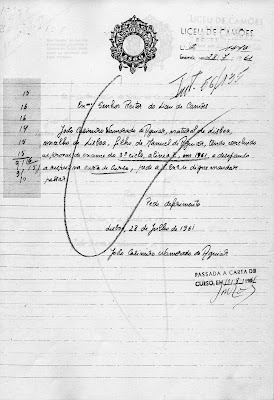 LICEU DE CAMÕES
LICEU DE CAMÕES
15
16
16
14
15
15
Exmº Senhor Reitor do Liceu de Camões
João Casimiro Namorado de Aguiar, natural de Lisboa,
concelho de Lisboa, filho de Manuel de Aguiar, tendo concluído
as provas de exame do 3º ciclo, alínea f, em 1961, e desejando
a respectiva carta de curso, pede a V. Exª se digne mandar
passar
Pede deferimento
Lisboa, 28 de Julho de 1961
João Casimiro Namorado de Aguiar
PASSADA A CARTA DE
CURSO, EM